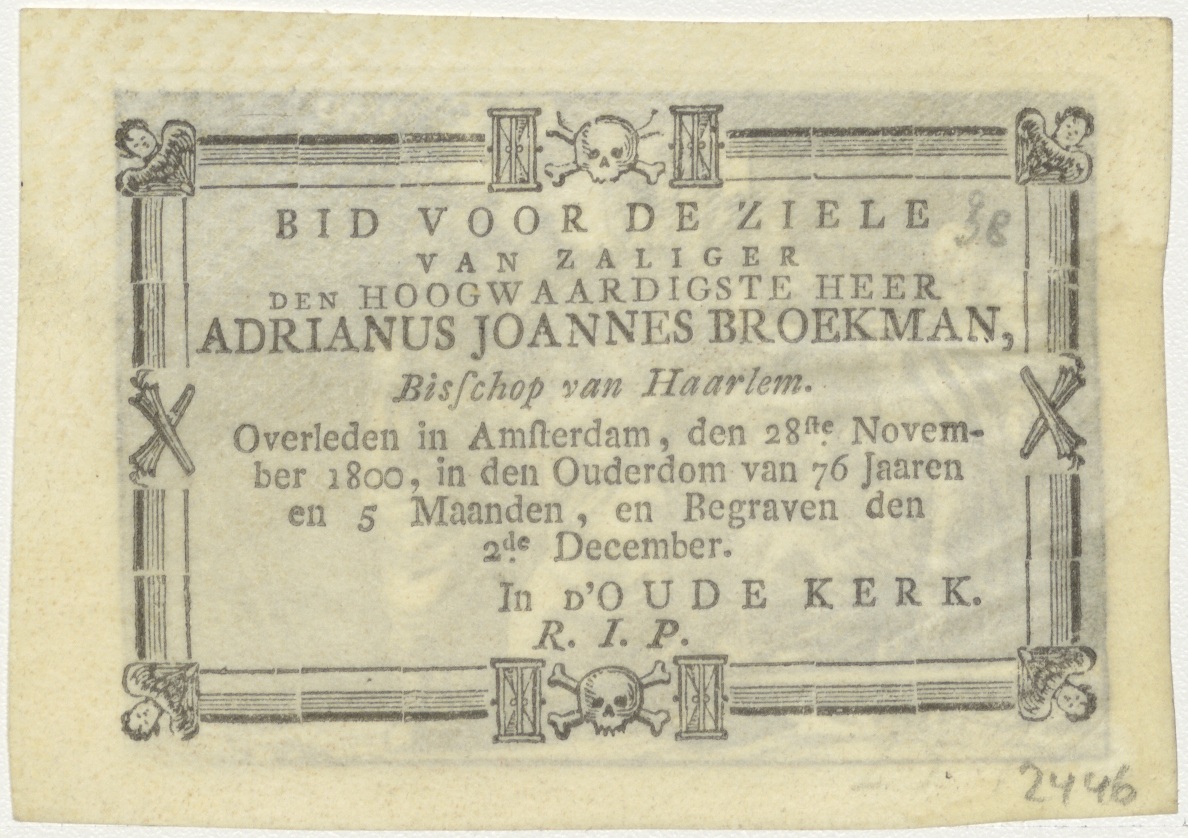 BID VOOR DE ZIELE
38
VAN ZALIGER
DEN HOOGWAARDIGSTE HEER
ADRIANUS JOANNES BROEKMAN,
Bisſchop van Haarlem.
Overleden in Amſterdam, den 28ſte. Novem-
ber 1800, in den Ouderdom van 76 Jaaren
en 5 Maanden, en Begraven den
2de December.
In D'OUDE KERK.
R. I. P.
2446